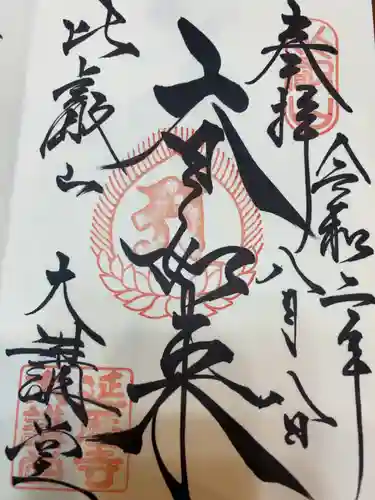 奉拝
令和二年
八月八日
大日如来
比叡山
大講堂
延暦寺